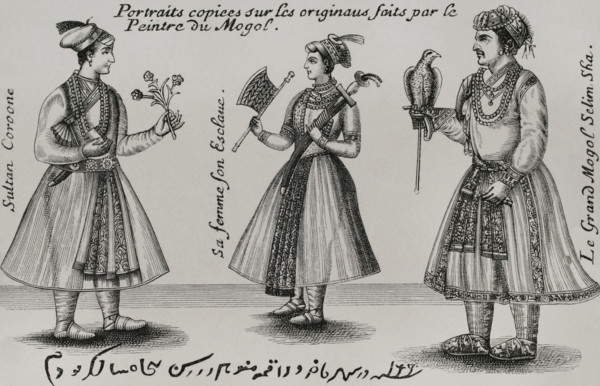 Portraits copiees sur les originaus faits par le
Peintre du Mogol.
Sultan Coroone
Sa femme son Esclave.
Le Grand Mogol Selim Sha.